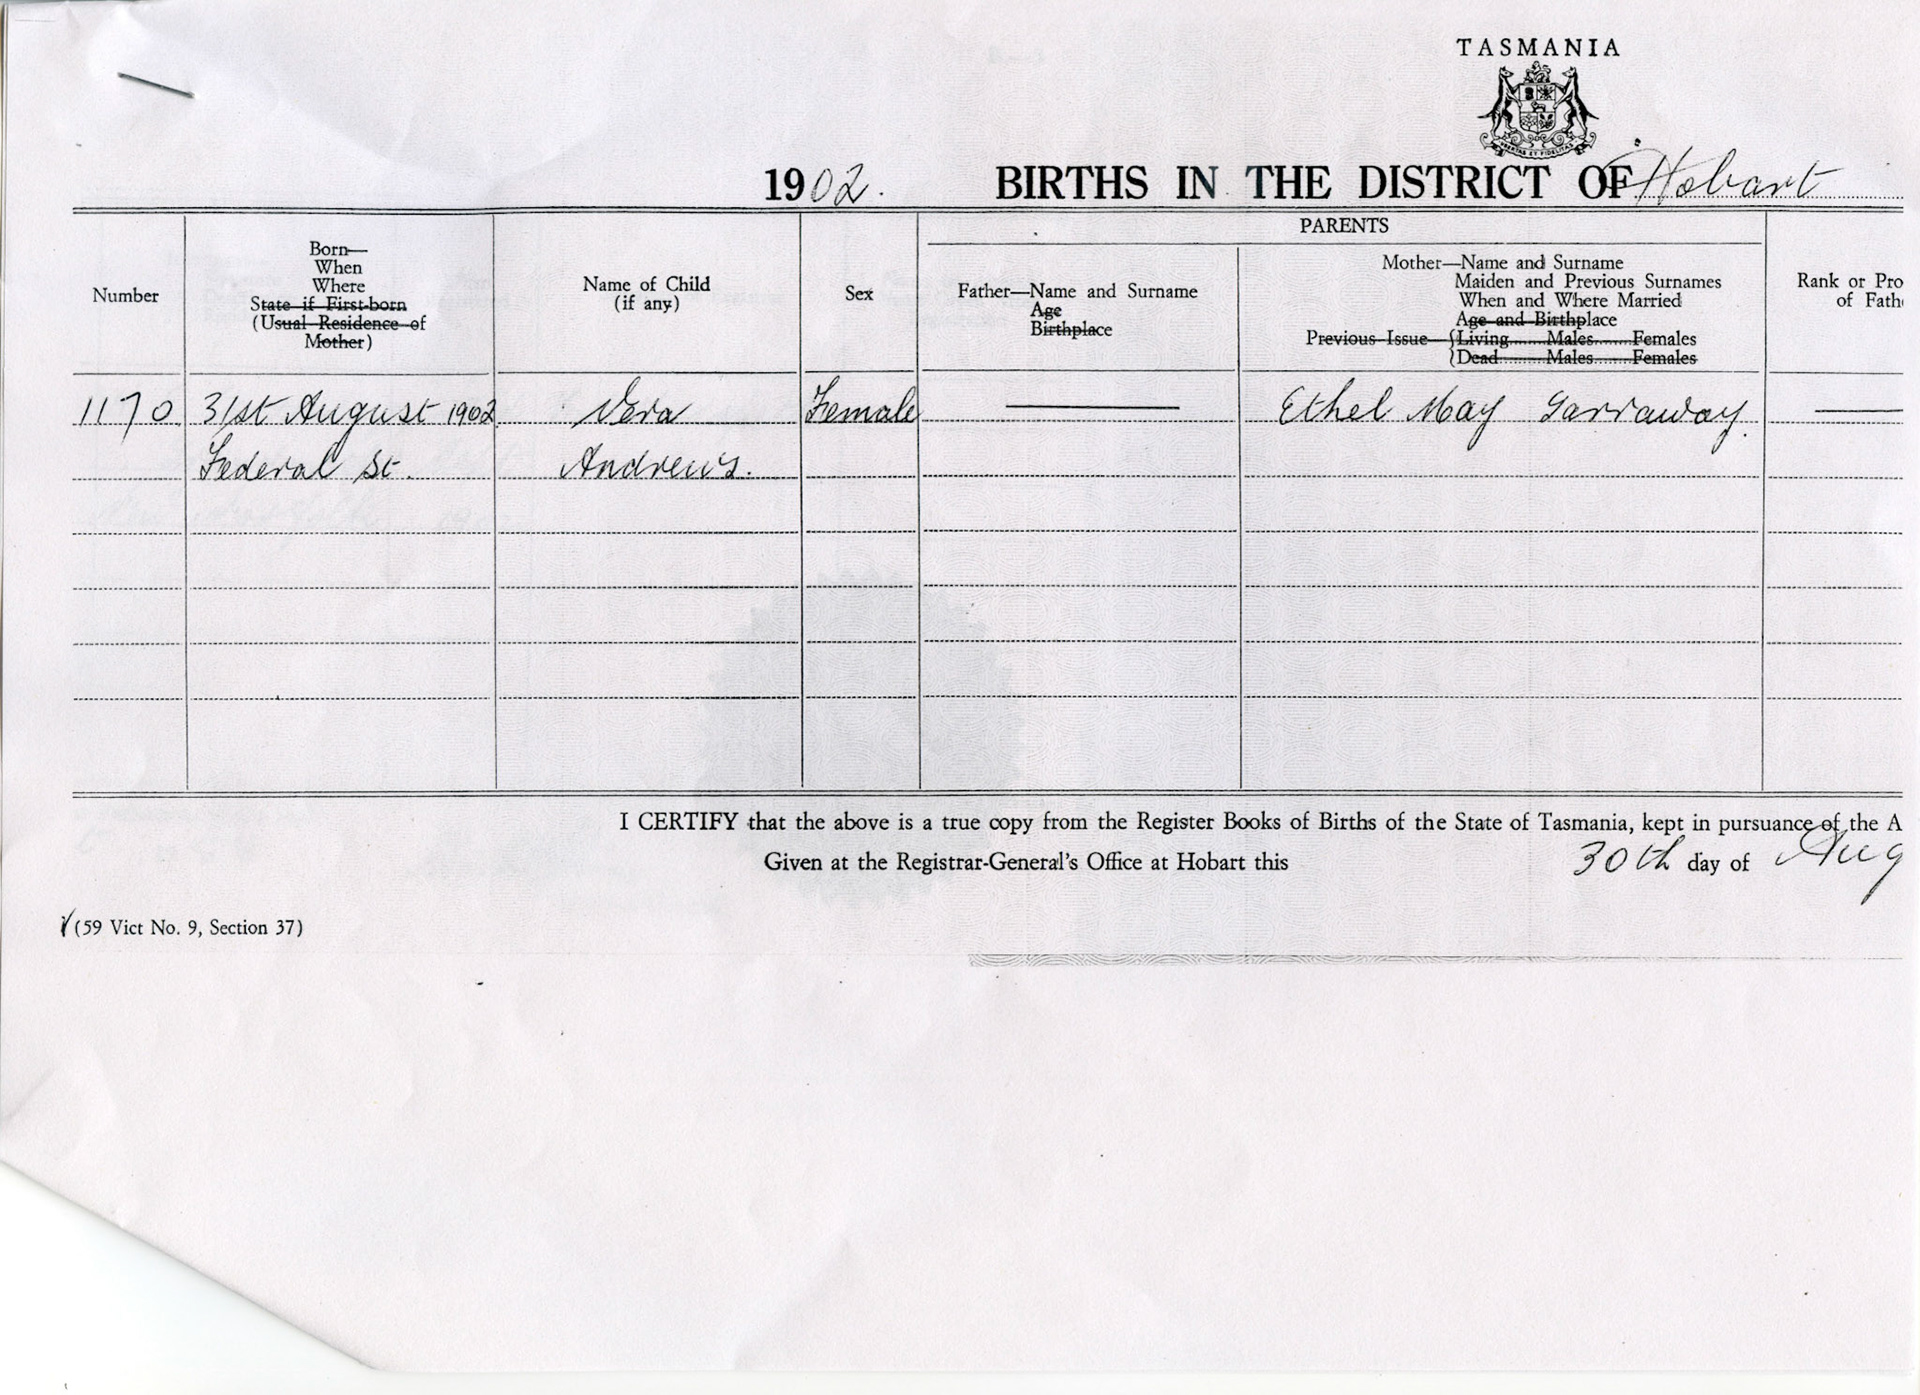 TASMANIA
LIBERTAS ET FIDELITAS
1902. BIRTHS IN THE DISTRICT OF Hobart
PARENTS
Number
Born—
When
Where
State if First-born
(Usual Residence of
Mother)
Name of Child
(if any)
Sex
Father—Name and Surname
Age
Birthplace
Mother—Name and Surname
Maiden and Previous Surnames
When and Where Married
Age and Birthplace
Previous Issue—{Living Males Females
{Dead Males Females
Rank or Pro
of Fath
1170 31st August 1902 Vera Female — Ethel May Garraway. —
Federal St. Andrews.
I CERTIFY that the above is a true copy from the Register Books of Births of the State of Tasmania, kept in pursuance of the A
Given at the Registrar-General's Office at Hobart this 30th day of Aug
(59 Vict No. 9, Section 37)